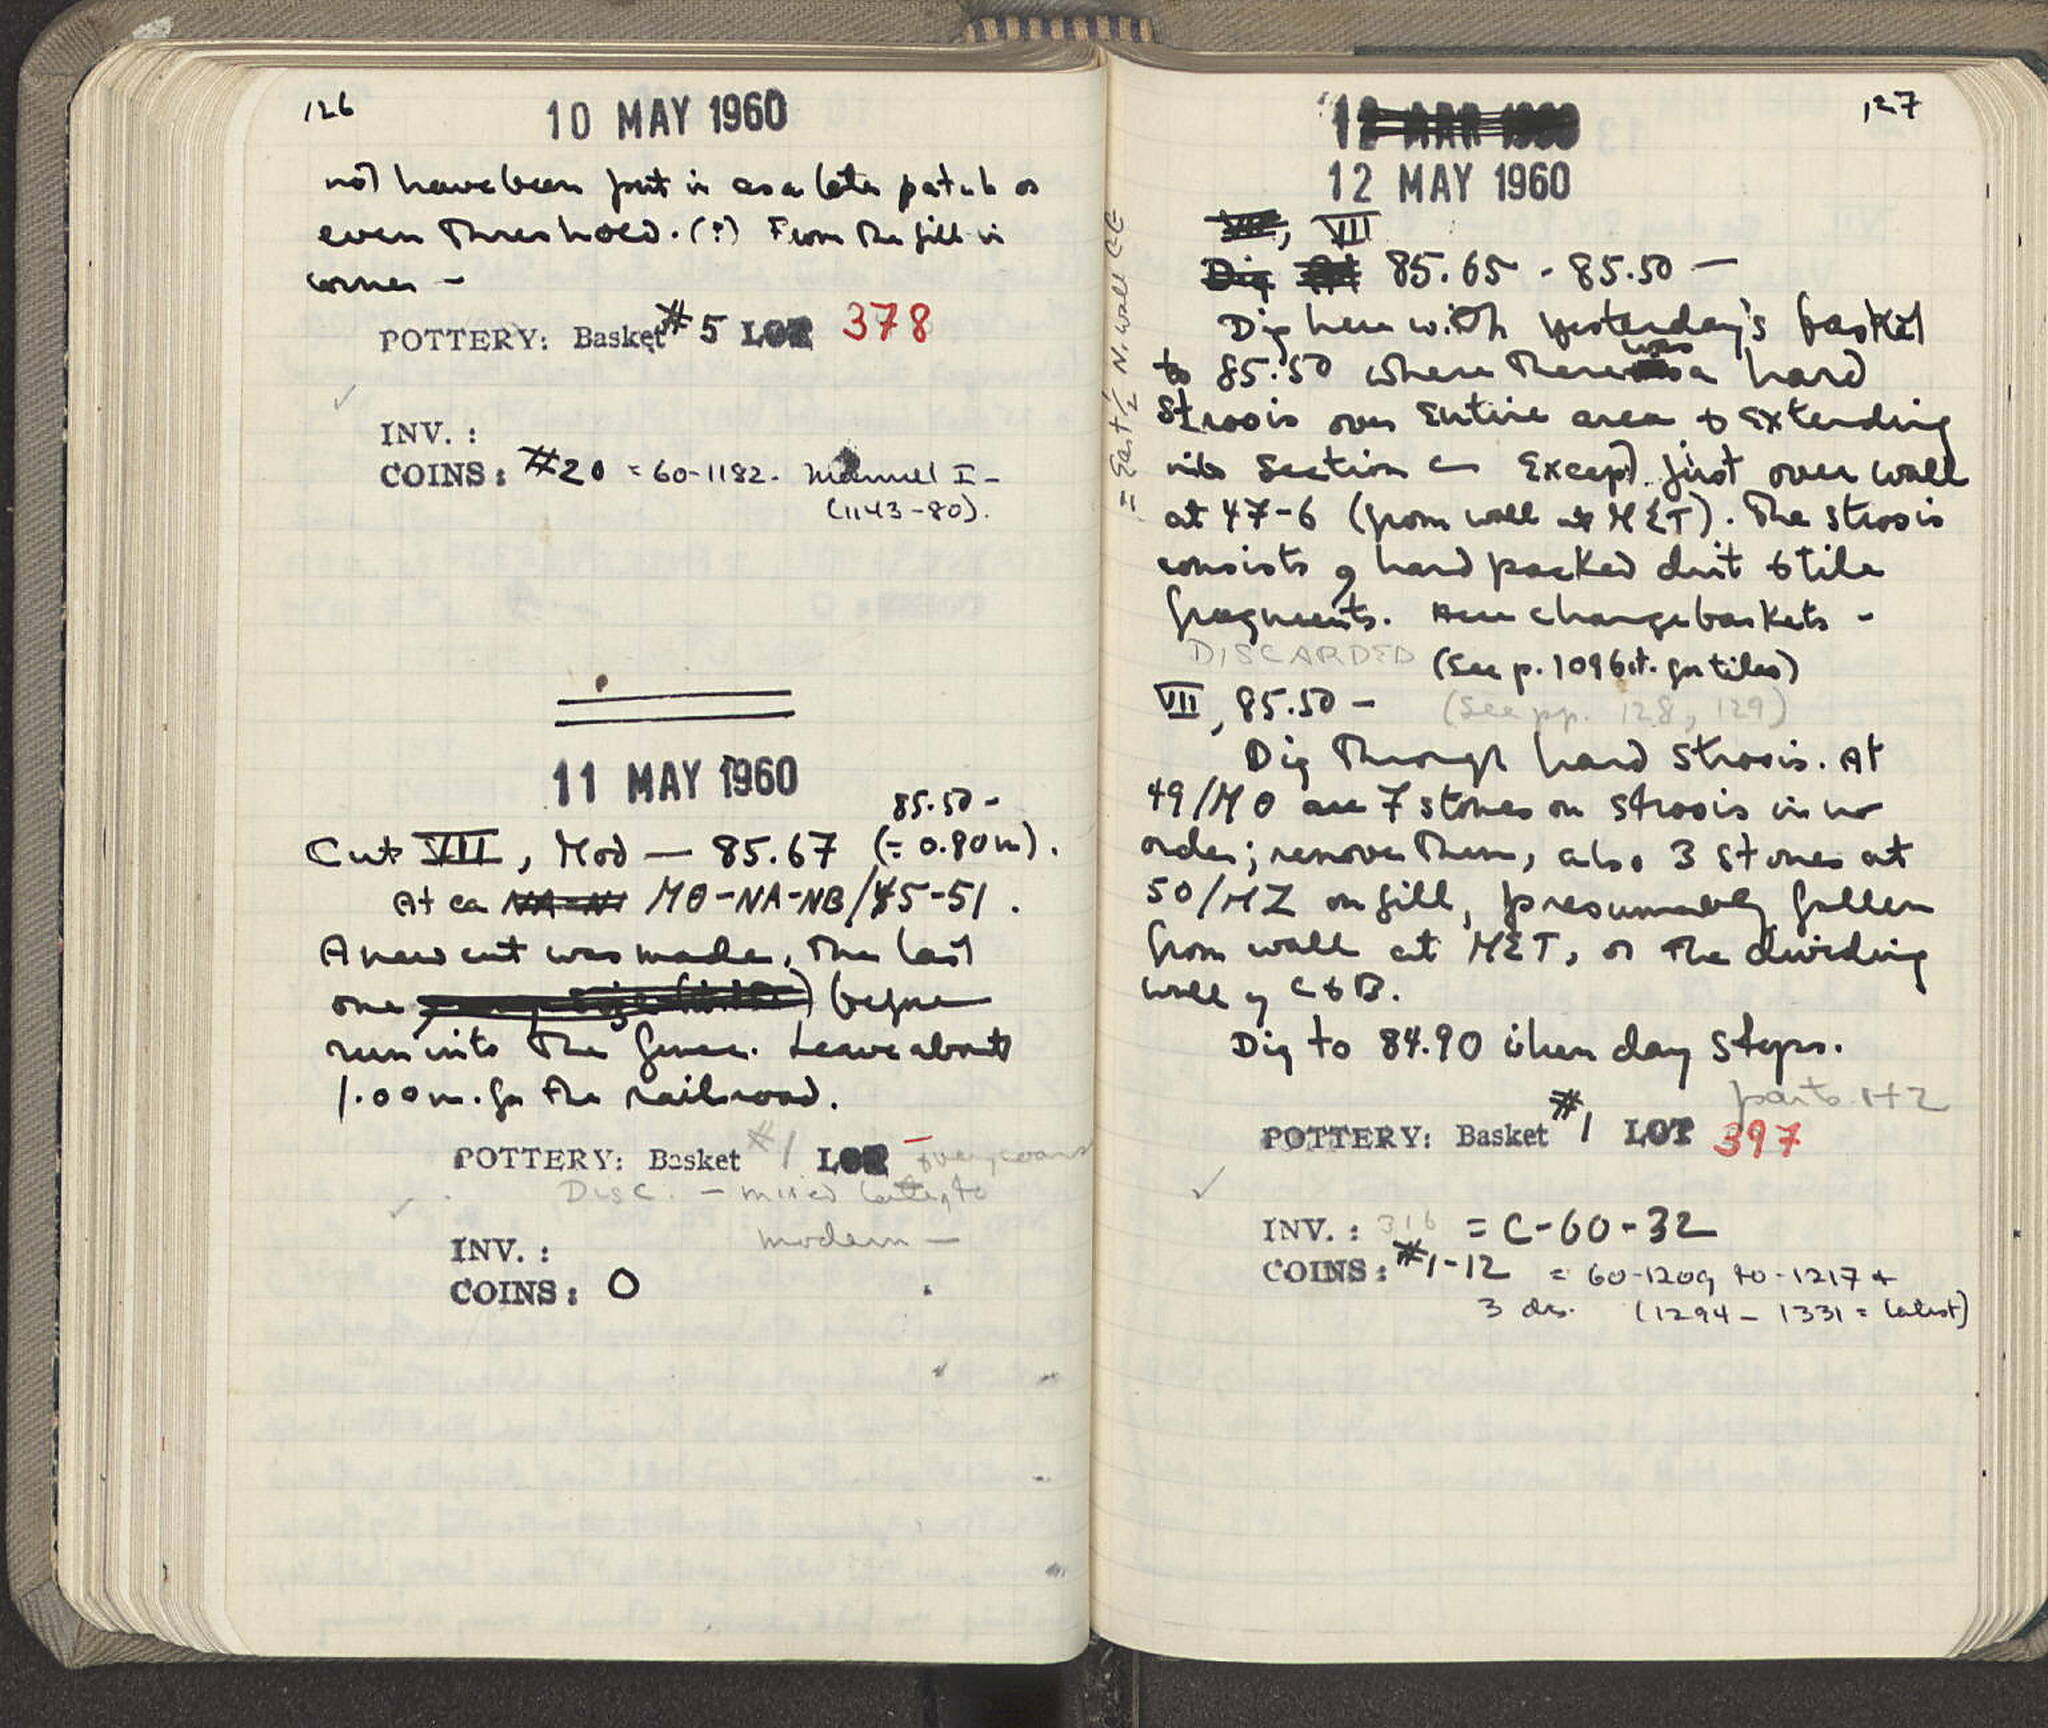 126
10 MAY 1960
not have been put in as a later patch or
even threshold. (?) From the fill in
corner —
POTTERY: Basket #5 LOT 378
✓
INV. :
COINS: #20 = 60-1182. Manuel I -
(1143-80).
11 MAY 1960
85.50 -
Cut VII, Mod — 85.67 (= 0.80m).
At ca MΘ-NA-NB/45-51.
A new cut was made, the last
one before
run into the fence. Leave about
1.00m. for the railroad.
POTTERY: Basket #1 LOT — & very coarse
Disc. — mixed late, to
modern —
✓
INV. :
COINS: 0
127
12 MAY 1960
VII
85.65 - 85.50 —
= East 1/2 N. wall CC
Dig here with yesterday's basket
to 85.50 where there was a hard
strosis over entire area & extending
into section C except just over wall
at 47-6 (from wall at MET). The strosis
consists of hard packed dirt & tile
fragments. Here change baskets -
DISCARDED (See p. 109 bot. for tiles)
VII, 85.50 — (See pp. 128, 129)
Dig through hard strosis. At
49/MΘ are 7 stones on strosis in no
order; remove them, also 3 stones at
50/MZ on fill, presumably fallen
from wall at MET, or the dividing
wall of C & B.
Dig to 84.90 when day stops.
parts 1+2
POTTERY: Basket #1 LOT 397
✓
INV. : 316 = C-60-32
COINS: #1-12 = 60-1209 to -1217 +
3 dis. (1294 - 1331 = latest)